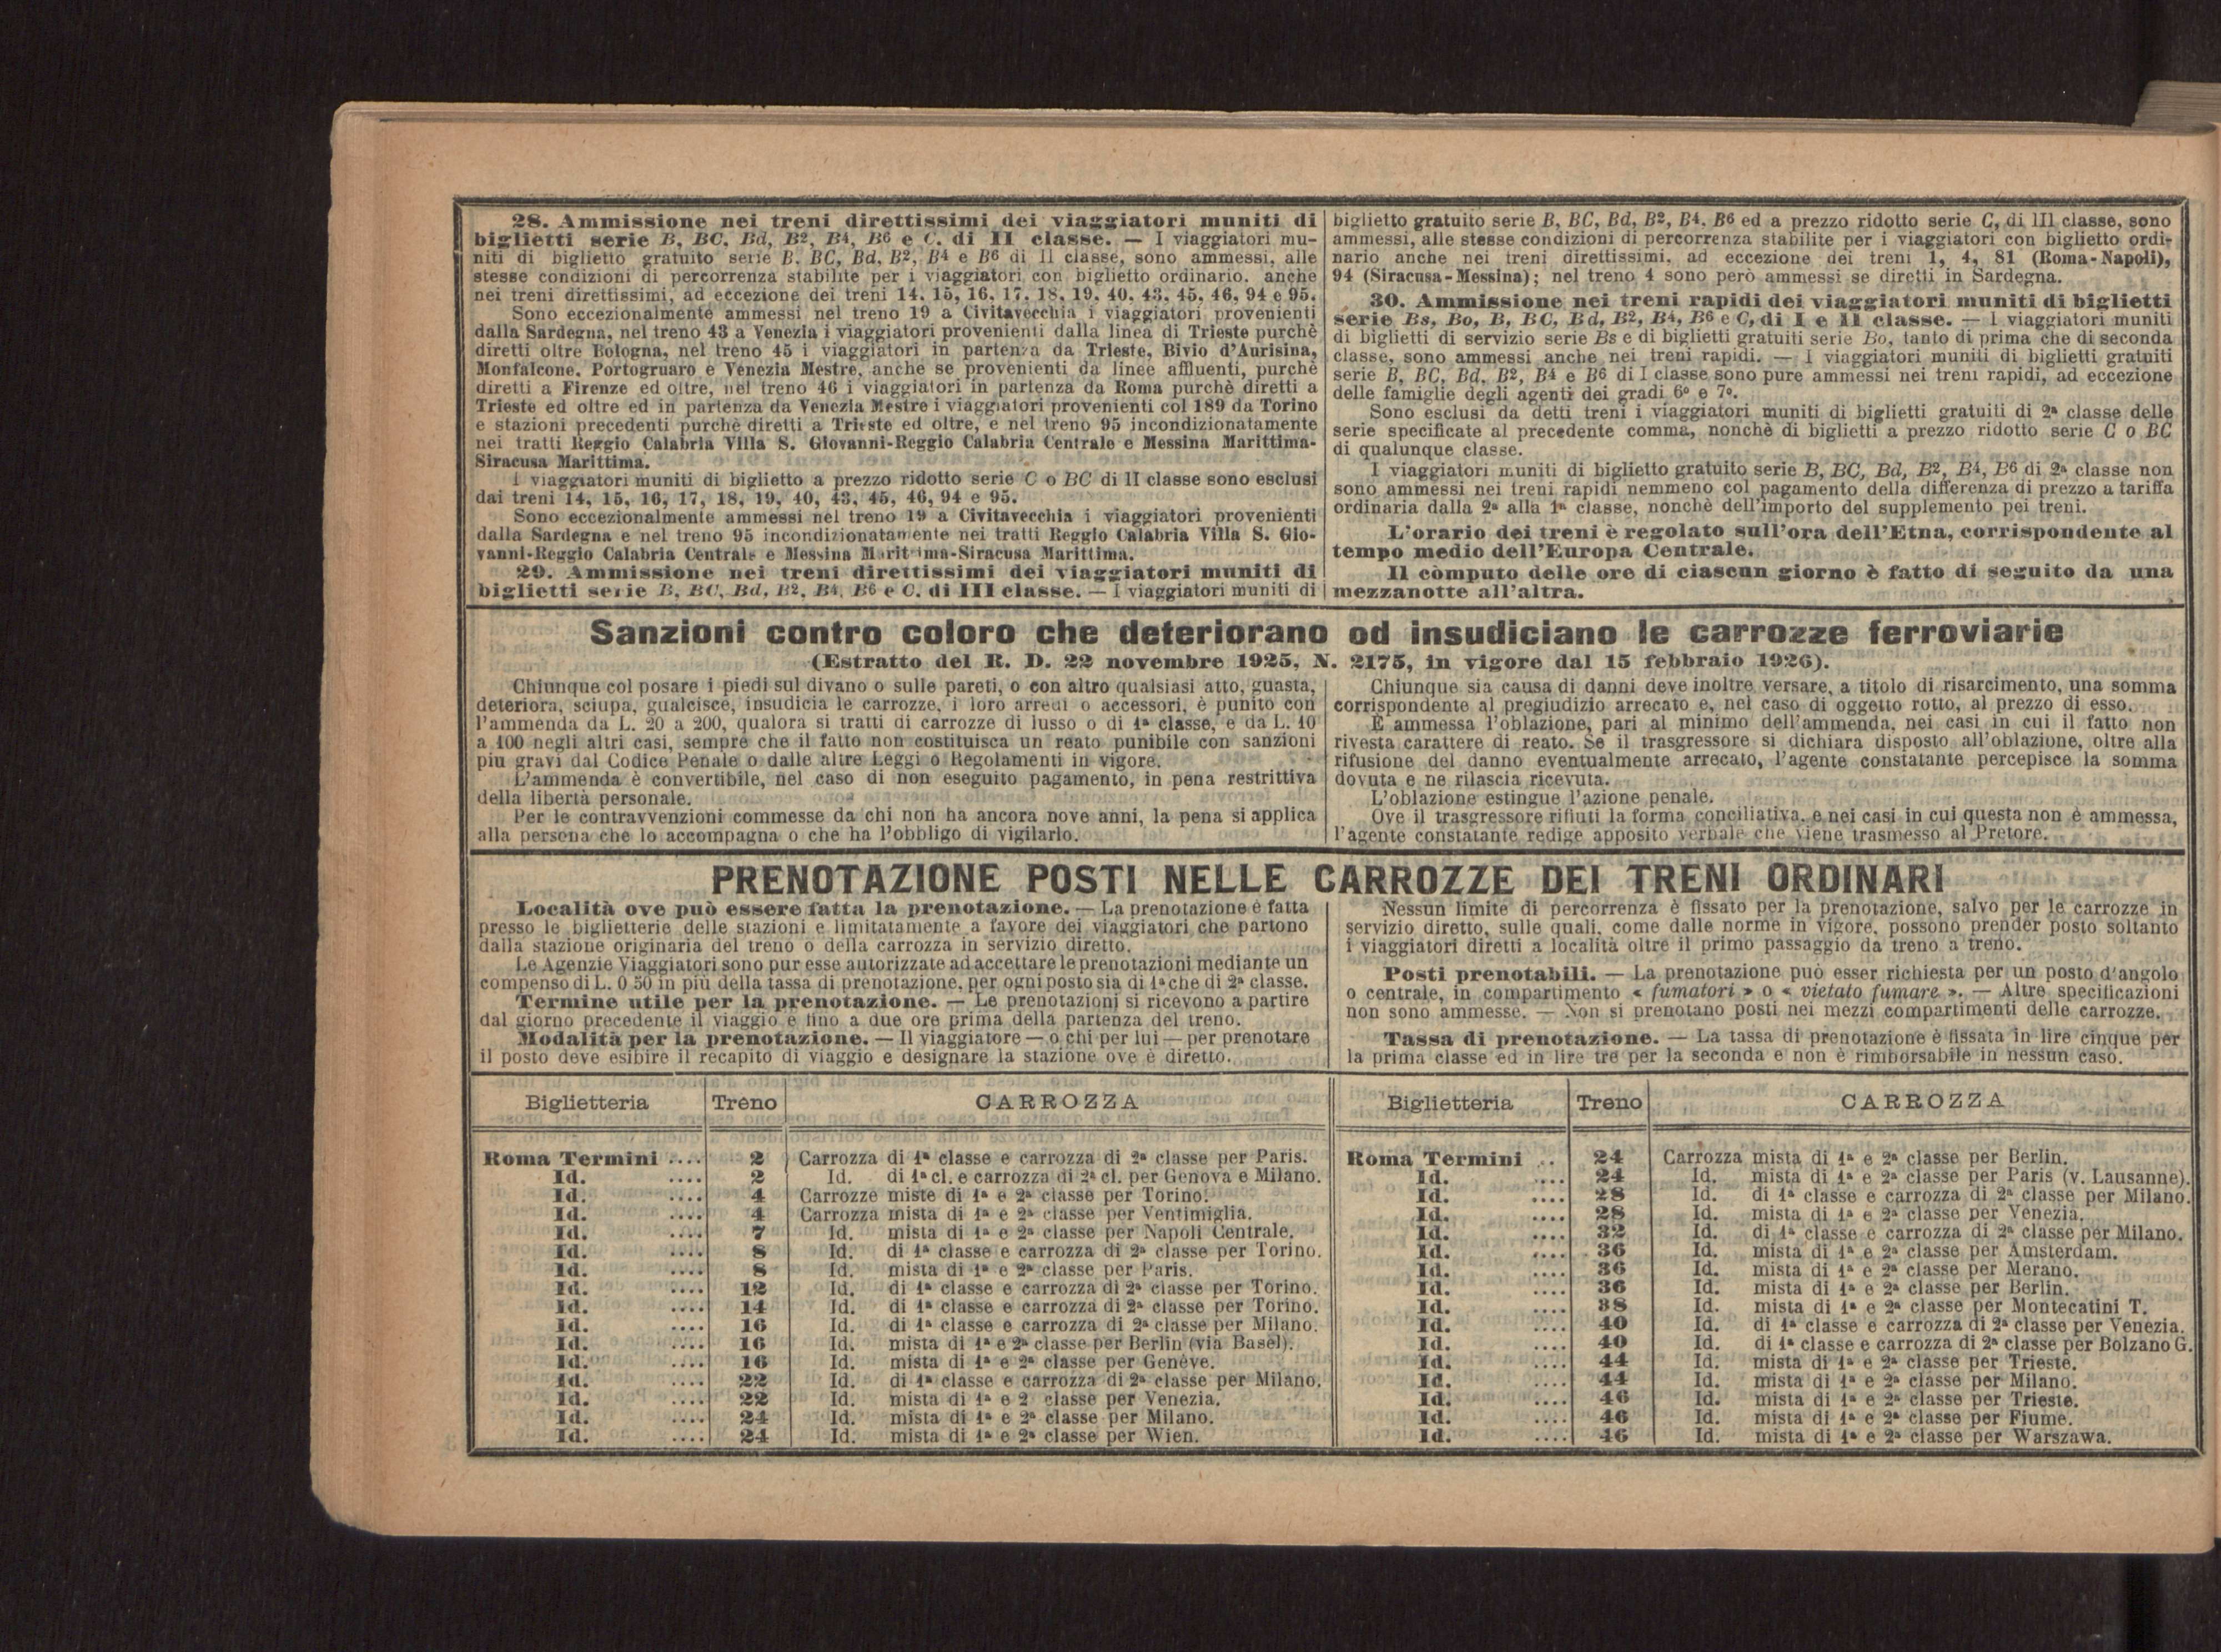 28. Ammissione nei treni direttissimi dei viaggiatori muniti di
biglietti serie B, BC, Bd, B2, B4, B6 e C. di II classe. — I viaggiatori mu-
niti di biglietto gratuito serie B, BC, Bd, B2, B4 e B6 di II classe, sono ammessi, alle
stesse condizioni di percorrenza stabilite per i viaggiatori con biglietto ordinario, anche
nei treni direttissimi, ad eccezione dei treni 14, 15, 16, 17, 18, 19, 40, 43, 45, 46, 94 e 95.
Sono eccezionalmente ammessi nel treno 19 a Civitavecchia i viaggiatori provenienti
dalla Sardegna, nel treno 43 a Venezia i viaggiatori provenienti dalla linea di Trieste purchè
diretti oltre Bologna, nel treno 45 i viaggiatori in partenza da Trieste, Bivio d'Aurisina,
Monfalcone, Portogruaro e Venezia Mestre, anche se provenienti da linee affluenti, purchè
diretti a Firenze ed oltre, nel treno 46 i viaggiatori in partenza da Roma purchè diretti a
Trieste ed oltre ed in partenza da Venezia Mestre i viaggiatori provenienti col 189 da Torino
e stazioni precedenti purchè diretti a Trieste ed oltre, e nel treno 95 incondizionatamente
nei tratti Reggio Calabria Villa S. Giovanni-Reggio Calabria Centrale e Messina Marittima-
Siracusa Marittima.
I viaggiatori muniti di biglietto a prezzo ridotto serie C o BC di II classe sono esclusi
dai treni 14, 15, 16, 17, 18, 19, 40, 43, 45, 46, 94 e 95.
Sono eccezionalmente ammessi nel treno 19 a Civitavecchia i viaggiatori provenienti
dalla Sardegna e nel treno 95 incondizionatamente nei tratti Reggio Calabria Villa S. Gio-
vanni-Reggio Calabria Centrale e Messina Marittima-Siracusa Marittima.
29. Ammissione nei treni direttissimi dei viaggiatori muniti di
biglietti serie B, BC, Bd, B2, B4, B6 e C. di III classe. — I viaggiatori muniti di
biglietto gratuito serie B, BC, Bd, B2, B4, B6 ed a prezzo ridotto serie C, di III classe, sono
ammessi, alle stesse condizioni di percorrenza stabilite per i viaggiatori con biglietto ordi-
nario anche nei treni direttissimi, ad eccezione dei treni 1, 4, 81 (Roma-Napoli),
94 (Siracusa-Messina); nel treno 4 sono però ammessi se diretti in Sardegna.
30. Ammissione nei treni rapidi dei viaggiatori muniti di biglietti
serie Bs, Bo, B, BC, Bd, B2, B4, B6 e C, di I e II classe. — I viaggiatori muniti
di biglietti di servizio serie Bs e di biglietti gratuiti serie Bo, tanto di prima che di seconda
classe, sono ammessi anche nei treni rapidi. — I viaggiatori muniti di biglietti gratuiti
serie B, BC, Bd, B2, B4 e B6 di I classe sono pure ammessi nei treni rapidi, ad eccezione
delle famiglie degli agenti dei gradi 6º e 7º.
Sono esclusi da detti treni i viaggiatori muniti di biglietti gratuiti di 2ª classe delle
serie specificate al precedente comma, nonchè di biglietti a prezzo ridotto serie C o BC
di qualunque classe.
I viaggiatori muniti di biglietto gratuito serie B, BC, Bd, B2, B4, B6 di 2ª classe non
sono ammessi nei treni rapidi nemmeno col pagamento della differenza di prezzo a tariffa
ordinaria dalla 2ª alla 1ª classe, nonchè dell'importo del supplemento pei treni.
L'orario dei treni è regolato sull'ora dell'Etna, corrispondente al
tempo medio dell'Europa Centrale.
Il còmputo delle ore di ciascun giorno è fatto di seguito da una
mezzanotte all'altra.
Sanzioni contro coloro che deteriorano od insudiciano le carrozze ferroviarie
(Estratto del R. D. 22 novembre 1925, N. 2175, in vigore dal 15 febbraio 1926).
Chiunque col posare i piedi sul divano o sulle pareti, o con altro qualsiasi atto, guasta,
deteriora, sciupa, gualcisce, insudicia le carrozze, i loro arredi o accessori, è punito con
l'ammenda da L. 20 a 200, qualora si tratti di carrozze di lusso o di 1ª classe, e da L. 10
a 100 negli altri casi, sempre che il fatto non costituisca un reato punibile con sanzioni
piu gravi dal Codice Penale o dalle altre Leggi o Regolamenti in vigore.
L'ammenda è convertibile, nel caso di non eseguito pagamento, in pena restrittiva
della libertà personale.
Per le contravvenzioni commesse da chi non ha ancora nove anni, la pena si applica
alla persona che lo accompagna o che ha l'obbligo di vigilarlo.
Chiunque sia causa di danni deve inoltre versare, a titolo di risarcimento, una somma
corrispondente al pregiudizio arrecato e, nel caso di oggetto rotto, al prezzo di esso.
È ammessa l'oblazione, pari al minimo dell'ammenda, nei casi in cui il fatto non
rivesta carattere di reato. Se il trasgressore si dichiara disposto all'oblazione, oltre alla
rifusione del danno eventualmente arrecato, l'agente constatante percepisce la somma
dovuta e ne rilascia ricevuta.
L'oblazione estingue l'azione penale.
Ove il trasgressore rifiuti la forma conciliativa, e nei casi in cui questa non è ammessa,
l'agente constatante redige apposito verbale che viene trasmesso al Pretore.
PRENOTAZIONE POSTI NELLE CARROZZE DEI TRENI ORDINARI
Località ove può essere fatta la prenotazione. — La prenotazione è fatta
presso le biglietterie delle stazioni e limitatamente a favore dei viaggiatori che partono
dalla stazione originaria del treno o della carrozza in servizio diretto.
Le Agenzie Viaggiatori sono pur esse autorizzate ad accettare le prenotazioni mediante un
compenso di L. 0 50 in più della tassa di prenotazione, per ogni posto sia di 1ª che di 2ª classe.
Termine utile per la prenotazione. — Le prenotazioni si ricevono a partire
dal giorno precedente il viaggio e fino a due ore prima della partenza del treno.
Modalità per la prenotazione. — Il viaggiatore — o chi per lui — per prenotare
il posto deve esibire il recapito di viaggio e designare la stazione ove è diretto.
Nessun limite di percorrenza è fissato per la prenotazione, salvo per le carrozze in
servizio diretto, sulle quali, come dalle norme in vigore, possono prender posto soltanto
i viaggiatori diretti a località oltre il primo passaggio da treno a treno.
Posti prenotabili. — La prenotazione può esser richiesta per un posto d'angolo
o centrale, in compartimento « fumatori » o « vietato fumare ». — Altre specificazioni
non sono ammesse. — Non si prenotano posti nei mezzi compartimenti delle carrozze.
Tassa di prenotazione. — La tassa di prenotazione è fissata in lire cinque per
la prima classe ed in lire tre per la seconda e non è rimborsabile in nessun caso.
Biglietteria Treno CARROZZA
Roma Termini .... 2 Carrozza di 1ª classe e carrozza di 2ª classe per Paris.
Id. .... 2 Id. di 1ª cl. e carrozza di 2ª cl. per Genova e Milano.
Id. .... 4 Carrozze miste di 1ª e 2ª classe per Torino.
Id. .... 4 Carrozza mista di 1ª e 2ª classe per Ventimiglia.
Id. .... 7 Id. mista di 1ª e 2ª classe per Napoli Centrale.
Id. .... 8 Id. di 1ª classe e carrozza di 2ª classe per Torino.
Id. .... 8 Id. mista di 1ª e 2ª classe per Paris.
Id. .... 12 Id. di 1ª classe e carrozza di 2ª classe per Torino.
Id. .... 14 Id. di 1ª classe e carrozza di 2ª classe per Torino.
Id. .... 16 Id. di 1ª classe e carrozza di 2ª classe per Milano.
Id. .... 16 Id. mista di 1ª e 2ª classe per Berlin (via Basel).
Id. .... 16 Id. mista di 1ª e 2ª classe per Genève.
Id. .... 22 Id. di 1ª classe e carrozza di 2ª classe per Milano.
Id. .... 22 Id. mista di 1ª e 2 classe per Venezia.
Id. .... 24 Id. mista di 1ª e 2ª classe per Milano.
Id. .... 24 Id. mista di 1ª e 2ª classe per Wien.
Biglietteria Treno CARROZZA
Roma Termini .. 24 Carrozza mista di 1ª e 2ª classe per Berlin.
Id. .... 24 Id. mista di 1ª e 2ª classe per Paris (v. Lausanne).
Id. .... 28 Id. di 1ª classe e carrozza di 2ª classe per Milano.
Id. .... 28 Id. mista di 1ª e 2ª classe per Venezia.
Id. .... 32 Id. di 1ª classe e carrozza di 2ª classe per Milano.
Id. .... 36 Id. mista di 1ª e 2ª classe per Amsterdam.
Id. .... 36 Id. mista di 1ª e 2ª classe per Merano.
Id. .... 36 Id. mista di 1ª e 2ª classe per Berlin.
Id. .... 38 Id. mista di 1ª e 2ª classe per Montecatini T.
Id. .... 40 Id. di 1ª classe e carrozza di 2ª classe per Venezia.
Id. .... 40 Id. di 1ª classe e carrozza di 2ª classe per Bolzano G.
Id. .... 44 Id. mista di 1ª e 2ª classe per Trieste.
Id. .... 44 Id. mista di 1ª e 2ª classe per Milano.
Id. .... 46 Id. mista di 1ª e 2ª classe per Trieste.
Id. .... 46 Id. mista di 1ª e 2ª classe per Fiume.
Id. .... 46 Id. mista di 1ª e 2ª classe per Warszawa.